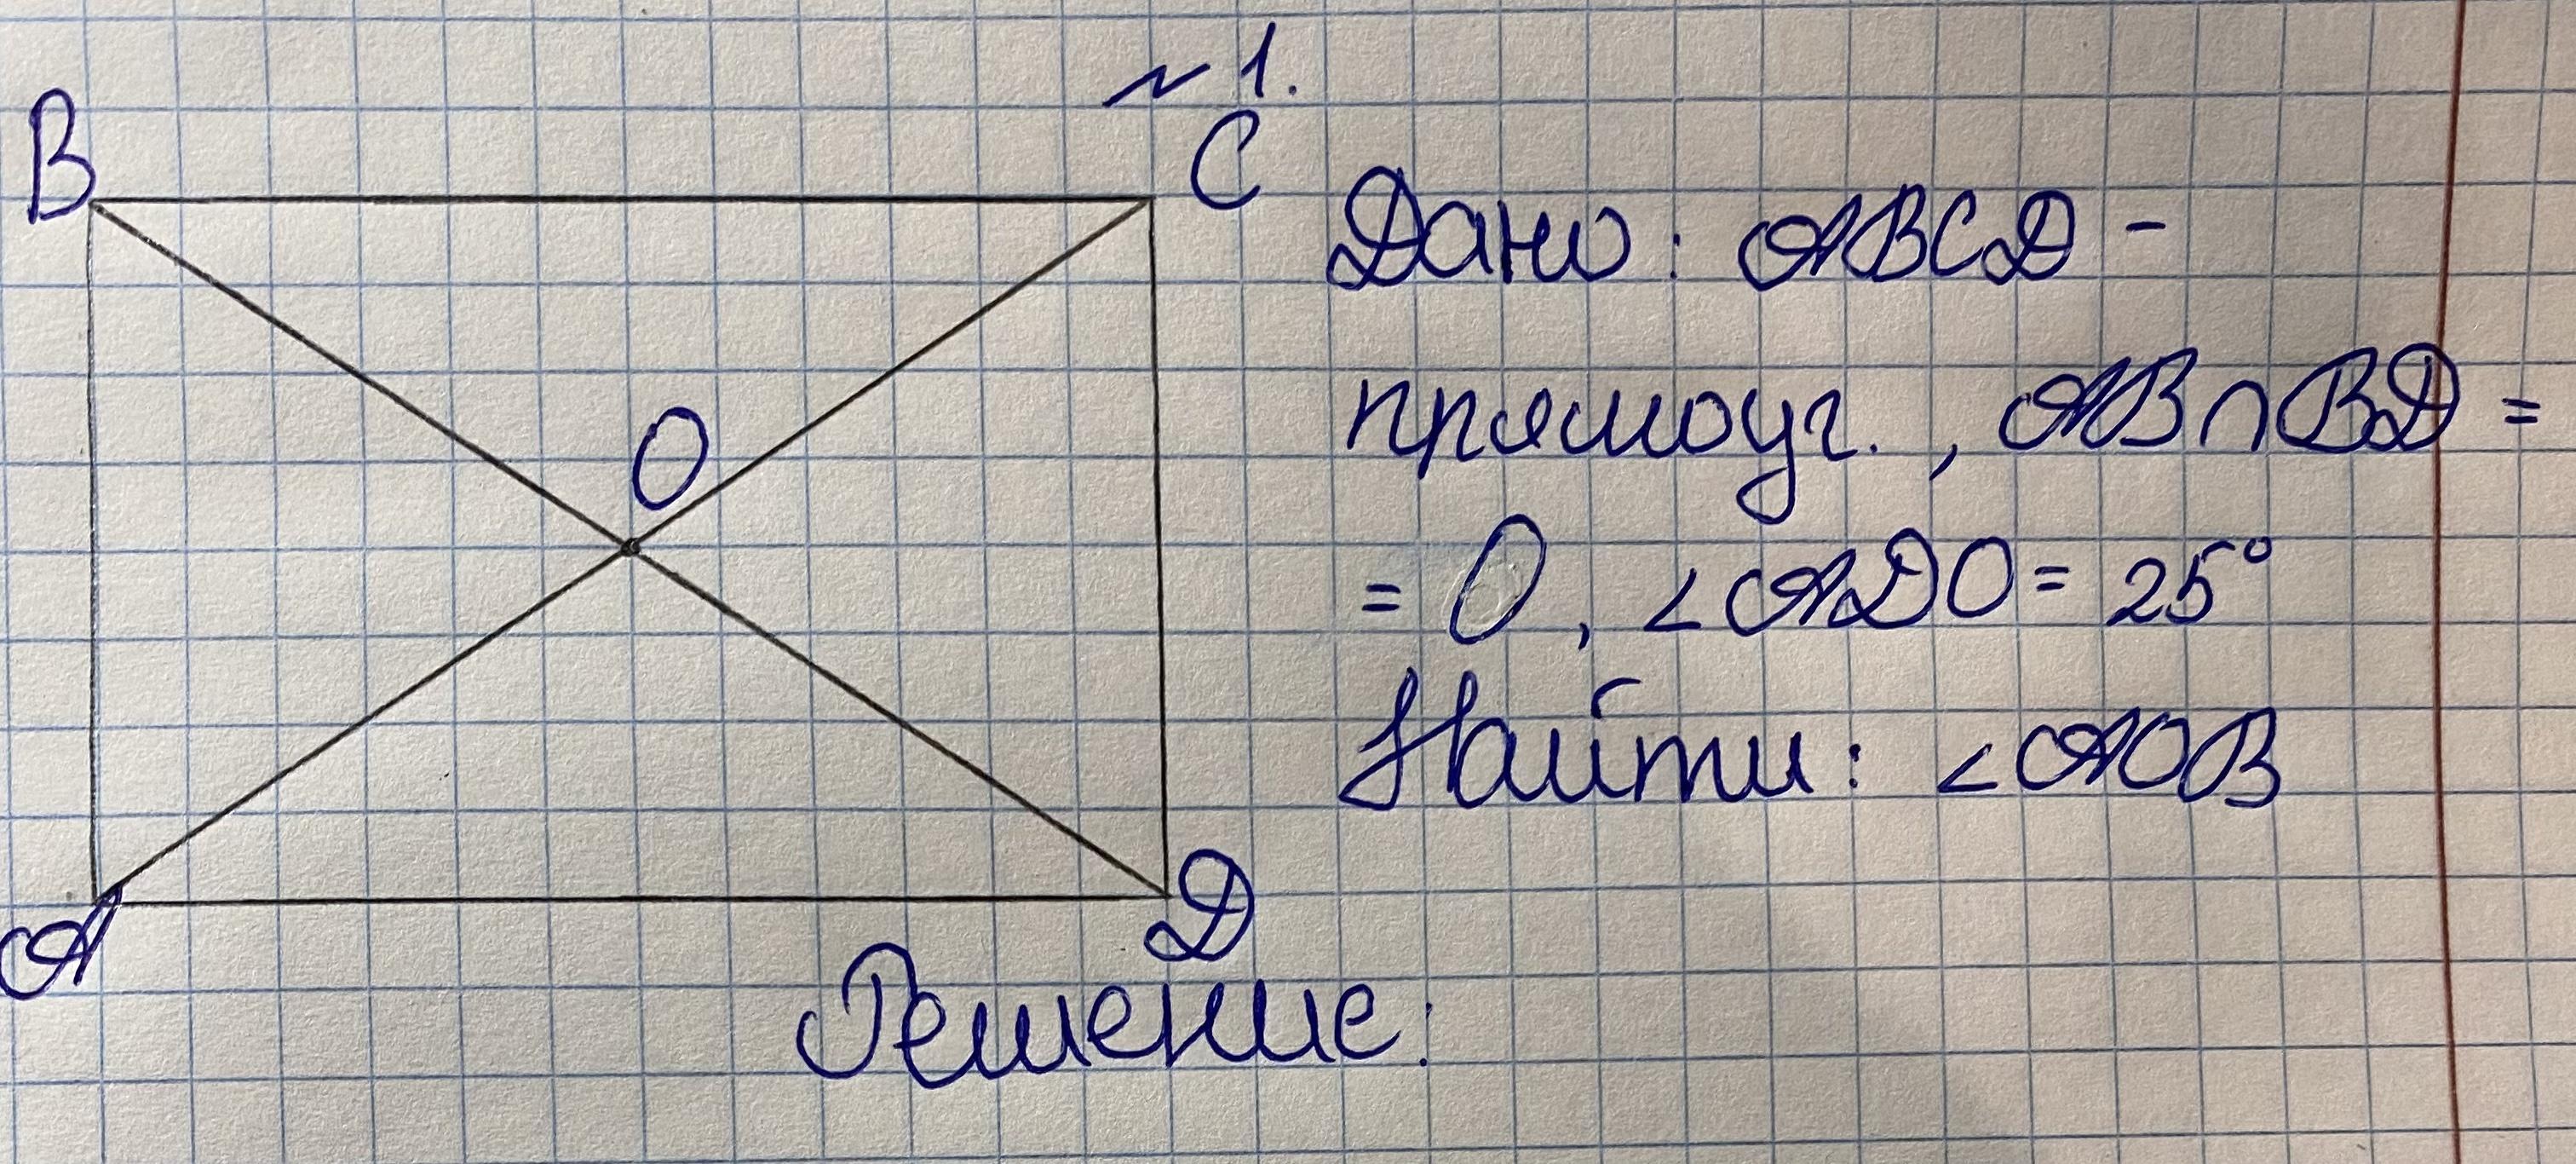 № 1.
B
C
O
A
D
Дано: ABCD -
прямоуг., AB∩BD =
= O, ∠ADO = 25°
Найти: ∠AOB
Решение: